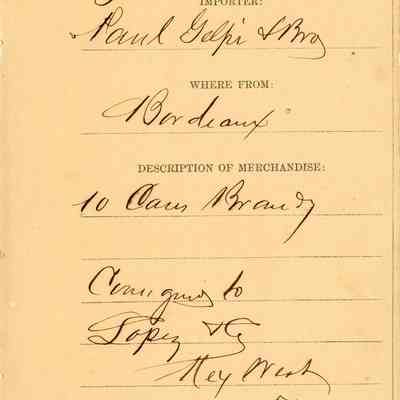 IMPORTER:
Paul Gelpi & Bro
WHERE FROM:
Bordeaux
DESCRIPTION OF MERCHANDISE:
10 Cases Brandy
to
Lopez &
Key West